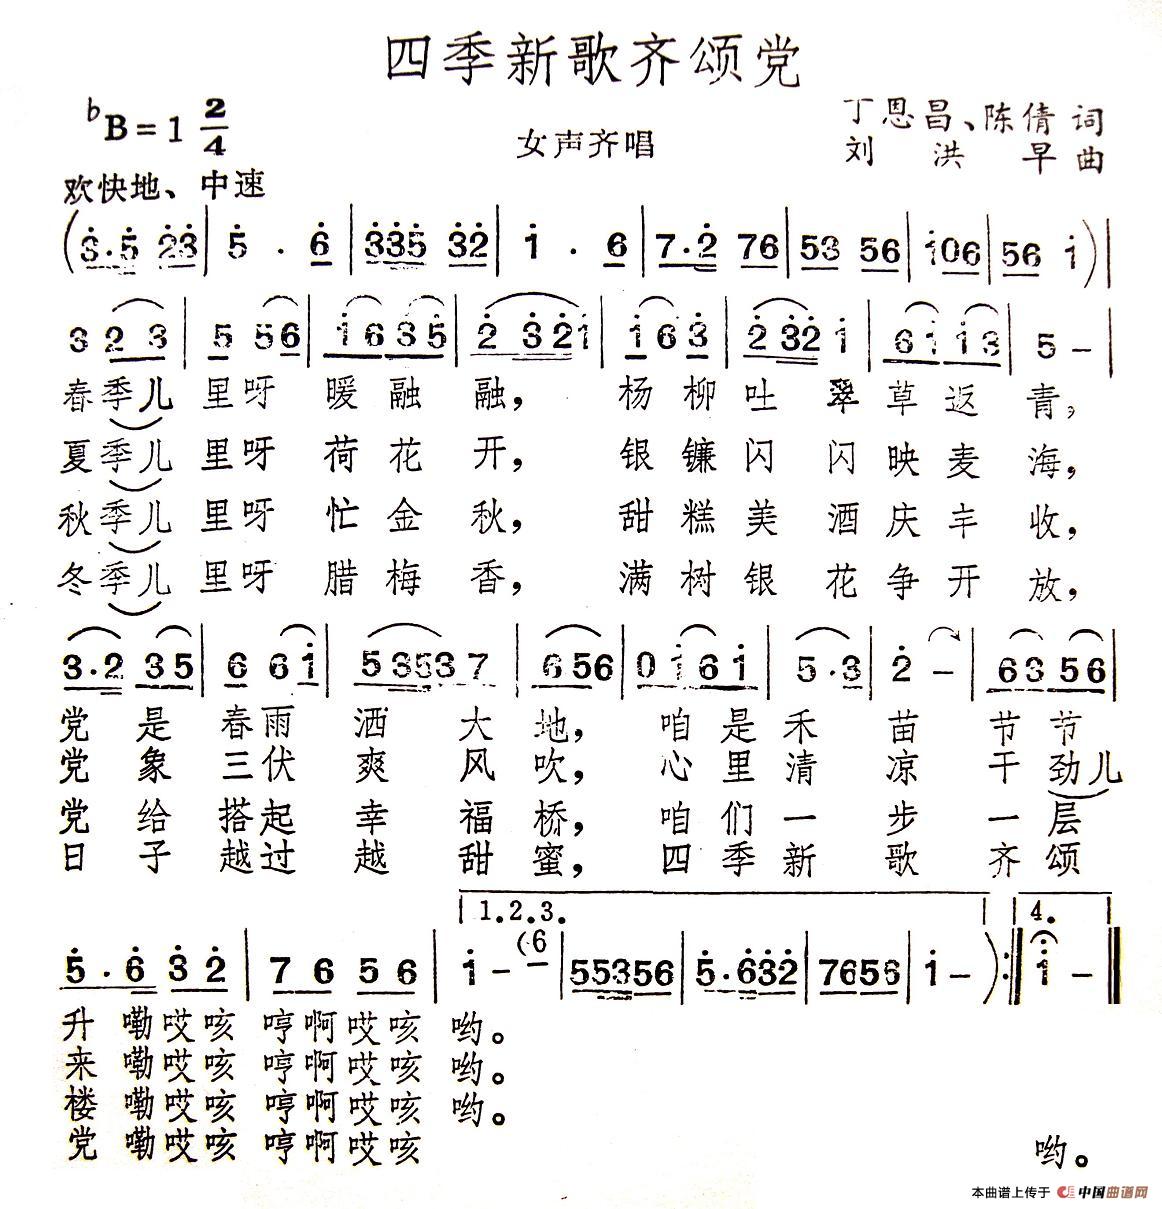 四季新歌齐颂党
♭B=1 2/4
女声齐唱
丁恩昌、陈倩 词
刘洪早 曲
欢快地、中速
(3·5 23 | 5 · 6 | 335 32 | 1 · 6 | 7·2 76 | 53 56 | 106 | 56 1 )|
3 2 3 | 5 56 | 1635 | 2 321 | 163 | 232 1 | 6113 | 5 – |
春季儿里呀暖融融，杨柳吐翠草返青，
夏季儿里呀荷花开，银镰闪闪映麦海，
秋季儿里呀忙金秋，甜糕美酒庆丰收，
冬季儿里呀腊梅香，满树银花争开放，
3·2 35 | 6 61 | 53537 | 656 | 0161 | 5·3 | 2 – | 6356 |
党是春雨洒大地，咱是禾苗节节
党象三伏爽风吹，心里清凉干劲儿
党给搭起幸福桥，咱们一步一层
日子越过越甜蜜，四季新歌齐颂
1.2.3. 4.
5·6 32 | 76 56 | 1 – (6 | 55356 | 5·632 | 7656 | 1 – ) :‖ 1 – ‖
升嘞哎咳哼啊哎咳哟。
来嘞哎咳哼啊哎咳哟。
楼嘞哎咳哼啊哎咳哟。
党嘞哎咳哼啊哎咳 哟。
本曲谱上传于 中国曲谱网